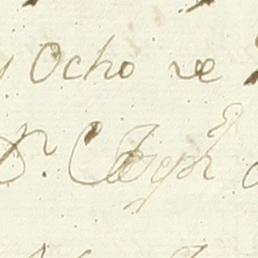 y Ocho ve
Dn. Joseph